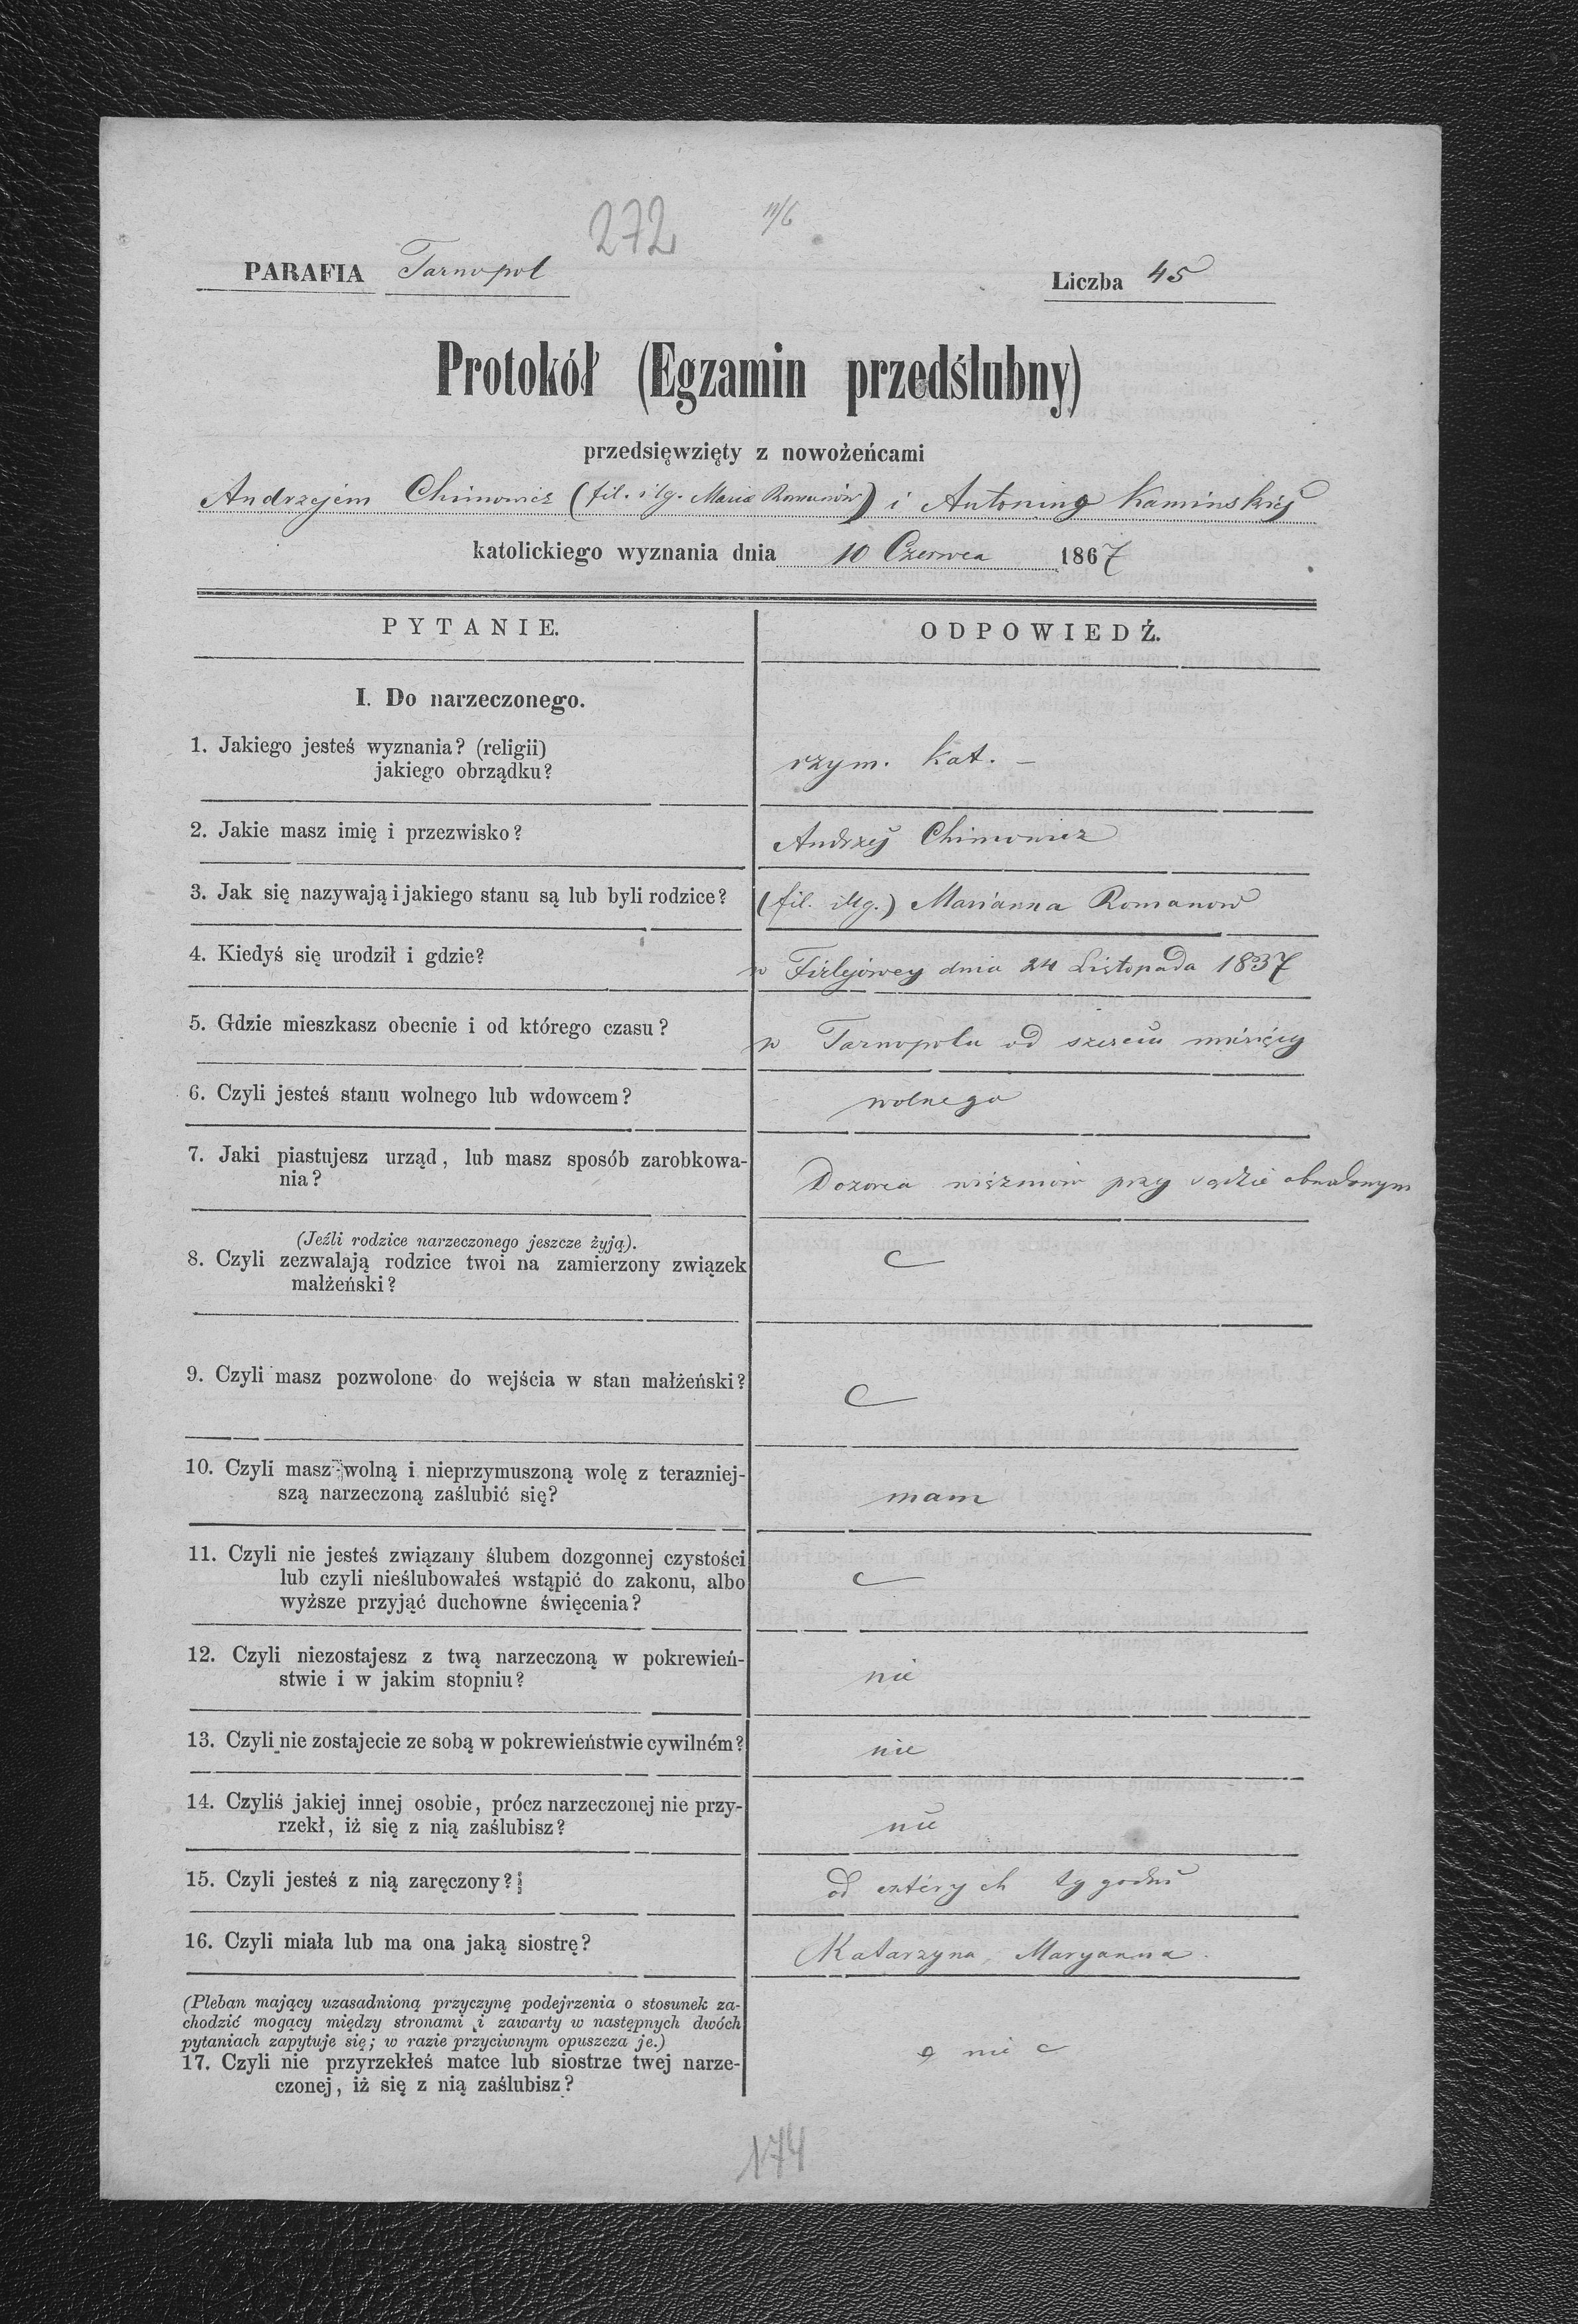 272 11/6
PARAFIA Tarnopol Liczba 45
Protokół (Egzamin przedślubny)
przedsięwzięty z nowożeńcami
Andrzejem Chimowicz (fil. illg. Maria Romanów) i Antoniną Kamińskiéj
katolickiego wyznania dnia 10 Czerwca 1867
PYTANIE. ODPOWIEDŹ.
I. Do narzeczonego.
1. Jakiego jesteś wyznania? (religii)
jakiego obrządku? rzym. kat. –
2. Jakie masz imię i przezwisko? Andrzej Chimowicz
3. Jak się nazywają i jakiego stanu są lub byli rodzice? (fil. illg.) Marianna Romanow
4. Kiedyś się urodził i gdzie? w Firlejówcy dnia 24 Listopada 1837
5. Gdzie mieszkasz obecnie i od którego czasu? w Tarnopolu od sześciu miesięcy
6. Czyli jesteś stanu wolnego lub wdowcem? wolnego
7. Jaki piastujesz urząd, lub masz sposób zarobkowa-
nia? Dozorca więźniów przy sądzie obwodowym
(Jeźli rodzice narzeczonego jeszcze żyją).
8. Czyli zezwalają rodzice twoi na zamierzony związek
małżeński?
9. Czyli masz pozwolone do wejścia w stan małżeński?
10. Czyli masz wolną i nieprzymuszoną wolę z terazniej-
szą narzeczoną zaślubić się? mam
11. Czyli nie jesteś związany ślubem dozgonnej czystości
lub czyli nieślubowałeś wstąpić do zakonu, albo
wyższe przyjąć duchowne święcenia?
12. Czyli niezostajesz z twą narzeczoną w pokrewień-
stwie i w jakim stopniu? nie
13. Czyli nie zostajecie ze sobą w pokrewieństwie cywilném? nie
14. Czyliś jakiej innej osobie, prócz narzeczonej nie przy-
rzekł, iż się z nią zaślubisz? nie
15. Czyli jesteś z nią zaręczony? od cztérych tygodni
16. Czyli miała lub ma ona jaką siostrę? Katarzyna, Maryanna.
(Pleban mający uzasadnioną przyczynę podejrzenia o stosunek za-
chodzić mogący między stronami i zawarty w następnych dwóch
pytaniach zapytuje się; w razie przyciwnym opuszcza je.)
17. Czyli nie przyrzekłeś matce lub siostrze twej narze-
czonej, iż się z nią zaślubisz? nie
174